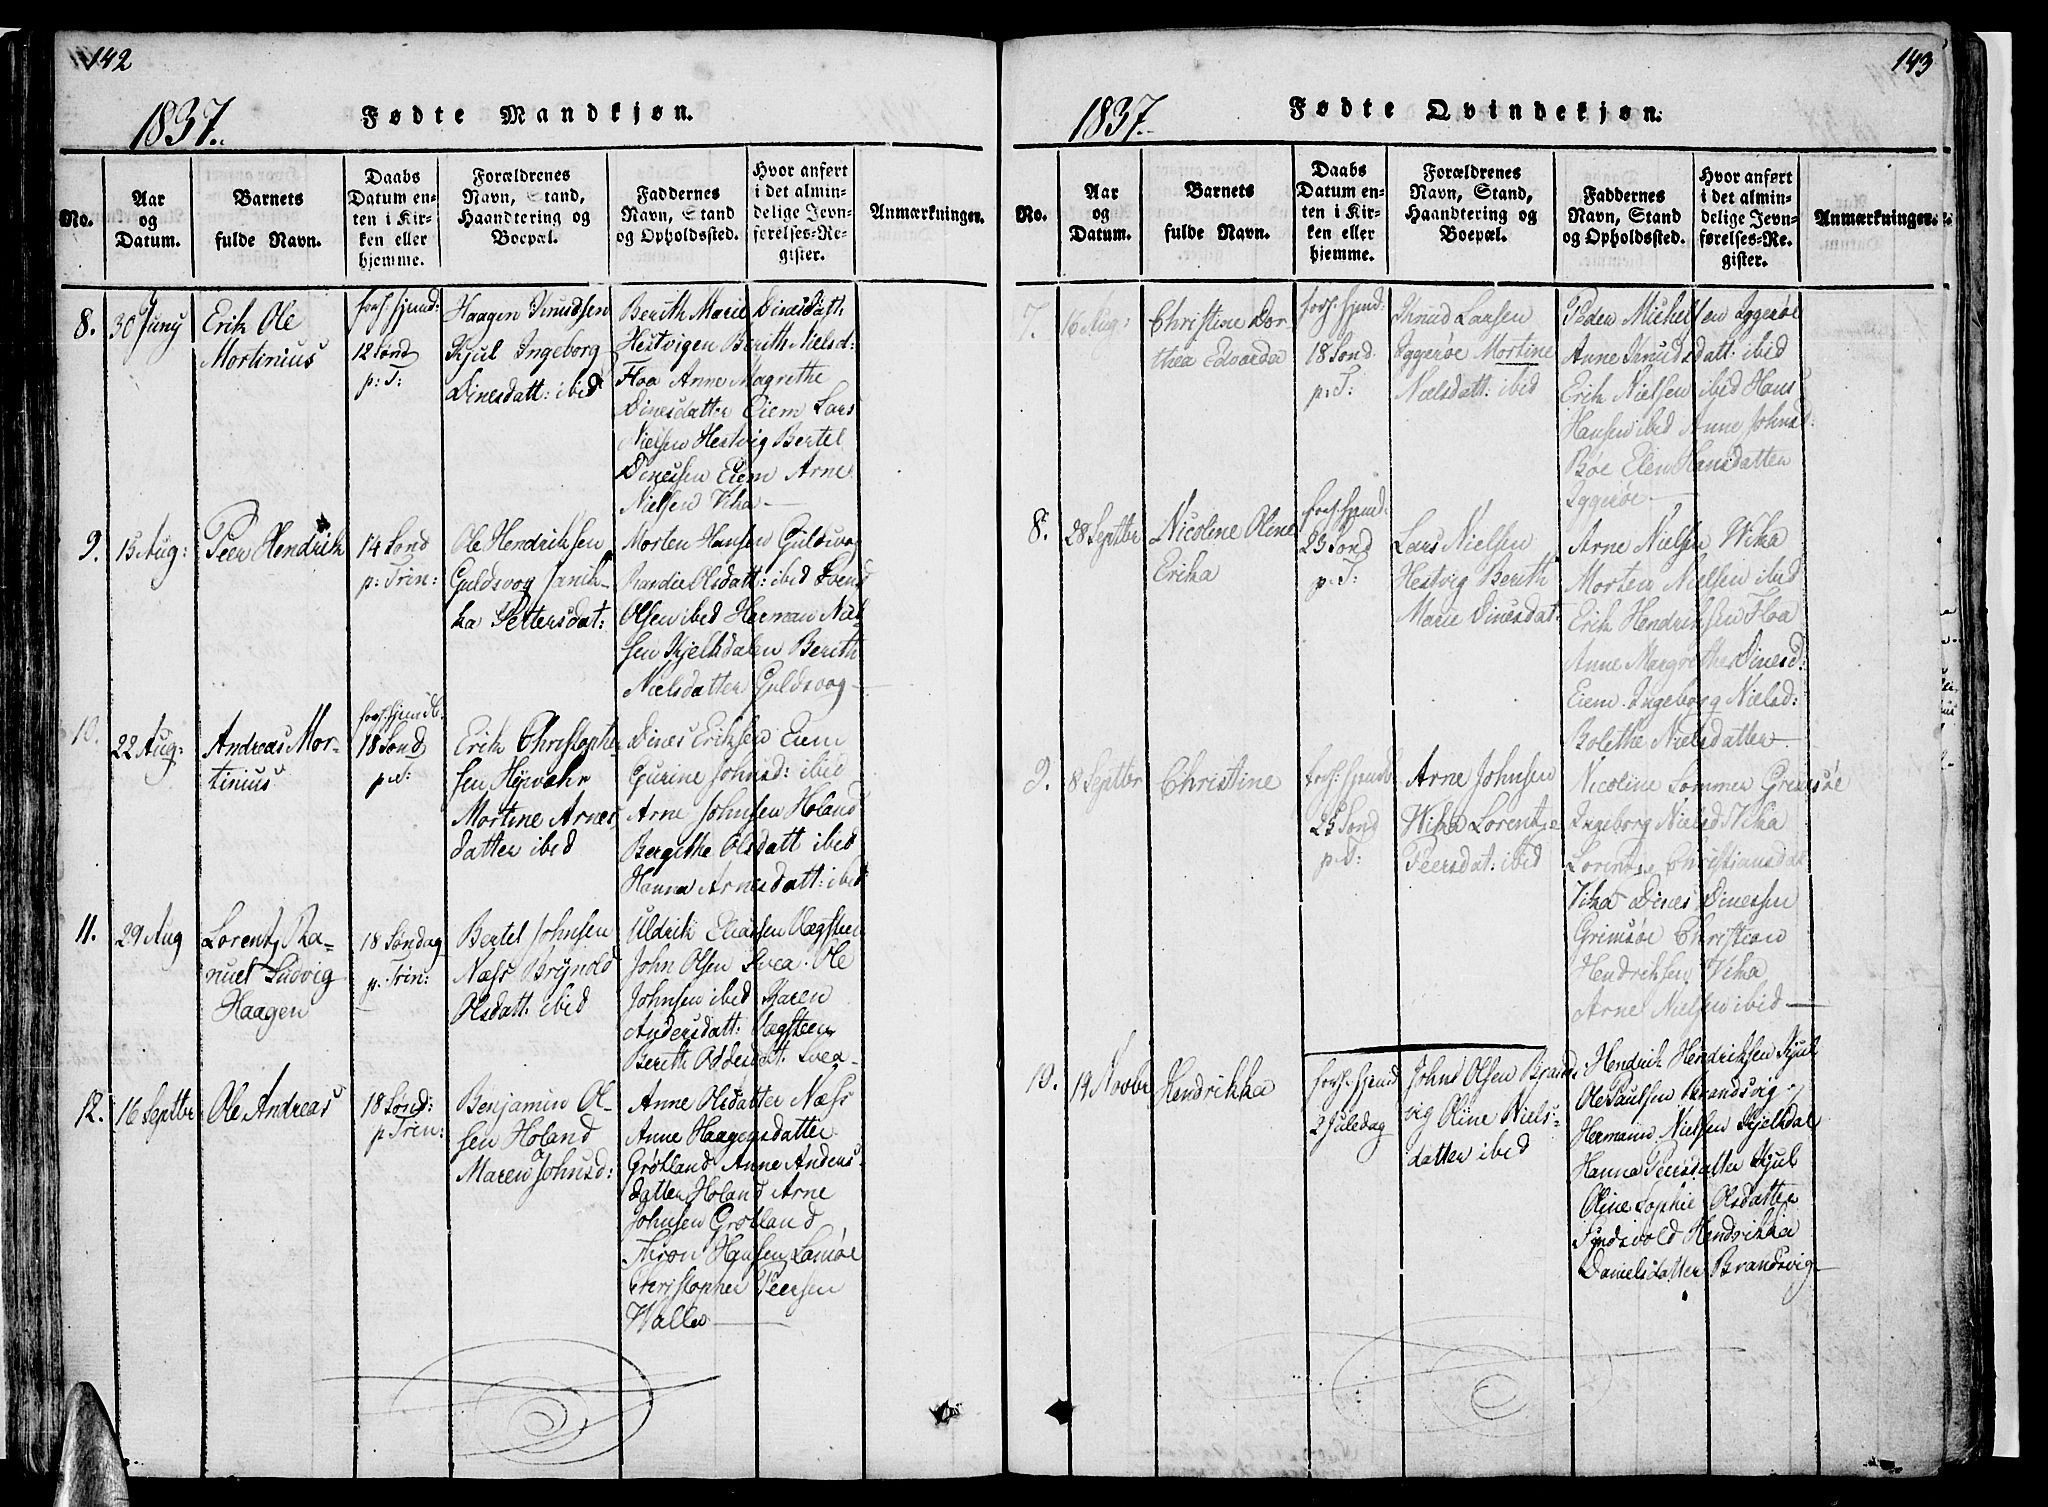 142
1837.
Fødte Mandkjøn.
No.
Aar
og
Datum.
Barnets
fulde Navn.
Daabs
Datum en-
ten i Kir-
ken eller
hjemme.
Forældrenes
Navn, Stand,
Haandtering og
Boepæl.
Faddernes
Navn, Stand
og Opholdssted.
Hvor anført
i det almin-
delige Jevn-
førelses-Re-
gister.
Anmærkninger.
8.
30 Juny
Erik Ole
Mortinius
12 Sønd
p: T:
Haagen Knudsen
Kjul Ingeborg
Dinesdatt: ibid
Berith Marie Dinesdatt:
Hestvigen Berith Nielsd:
Floa Anne Magrethe
Dinesdatter Eiem Lars
Nielsen Hestvig Bertel
Dinessen Eiem Arne
Nielsen Vika
9.
15 Aug:
Peer Hendrik
14 Sønd
p: Trin:
Ole Hendriksen
Guldsvog Janik-
ka Pettersdat:
Morten Hansen Guldsvog
Randie Olsdatt: ibid Svend
Olsen ibid Herman Niel-
sen Kjelkdalen Berith
Nielsdatter Guldsvog
10.
22 Aug:
Andreas Mor-
tinius
18 Sønd
p: T:
Erik Christophe-
sen
Mortine Arnes-
datter ibid
Dines Eriksen Eiem
Gurine Johnsd: ibid
Arne Johnsen Holand
Bergithe Olsdatt ibid
Hanna Arnesdatt: ibid
11.
29 Aug
Lorentz Ra-
nuel Ludvig
Haagen
18 Søndag
p. Trin:
Bertel Johnsen
Næss Brynold
Olsdatt: ibid
Uldrik Eliassen
John Olsen Svea. Ole
Johnsen ibid Karen
Andersdatt:
Berith Oddesdat. Svea
12.
16 Septbr
Ole Andreas
18 Sønd:
p Trin:
Benjamin Ol-
sen Holand
Maren Johnsd:
Anne Olsdatter Næss
Anne Haagensdatter
Grøtland Anne Anders-
datter Holand Arne
Johnsen Grøtland
Hansen
Christopher Peersen
Walle
143
1837.
Fødte Qvindekjøn.
No.
Aar
og
Datum.
Barnets
fulde Navn.
Daabs
Datum en-
ten i Kir-
ken eller
hjemme.
Forældrenes
Navn, Stand,
Haandtering og
Boepæl.
Faddernes
Navn, Stand
og Opholdssted.
Hvor anført
i det almin-
delige Jevn-
førelses-Re-
gister.
Anmærkninger.
7.
16 Aug:
Christine Dor-
thea Edvarda
18 Sønd.
p. T:
Knud Larsen
Iggerøe Mortine
Nielsdatt: ibid
Peder Michelsen Iggerøe
Anne Knudsdatt: ibid
Erik Nielsen ibid Hans
Hansen ibid Anne Johnsd:
Bøe Elen Hansdatter
Iggerøe
8.
28 Septbr
Nicoline Oline
Erika
23 Sønd
p. T:
Lars Nielsen
Hestvig Berith
Marie Dinesdat:
Arne Nielsen Wika
Morten Nielsen ibid
Erik Hendriksen Floa
Anne Margrethe Dinesd:
Eiem. Ingeborg Nielsd:
Bolethe Nielsdatter
9.
8 Septbr
Christine
25 Sønd
p. T:
Arne Johnsen
Wika Lorentze
Peersdat: ibid
Nicoline Sommer Grimsøe
Ingeborg Nielsd Vika
Lorentse Christiansdat
Vika Dines Dinessen
Grimsøe Christian
Hendriksen Vika
Arne Nielsen ibid
10.
19 Novbr
Hendrikka
2 Juledag
Johns Olsen Brands-
vig Oline Niels-
datter ibid
Hendrik Hendriksen Kjul
Ole Paulsen Brandsvig
Hermann Nielsen Kjelkdal
Hanna Peersdatter Kjul
Oline Sophie Olsdatter
Hendrikka
Danielsdatter Brandsvig